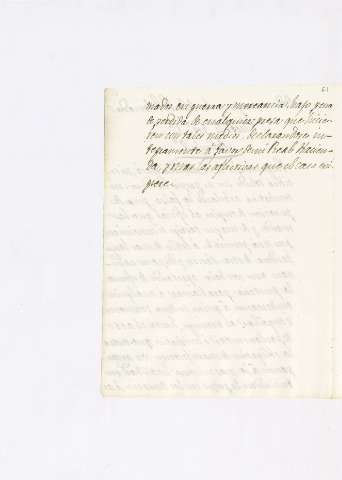 61
mados en guerra y mercancia, bajo pena
de perdida de cualquier presa que hicie-
ren con tales medios, declarandose in-
tegramente á favor de mi Real Hacien-
da, y otras las aflictivas que el caso exi-
giere.